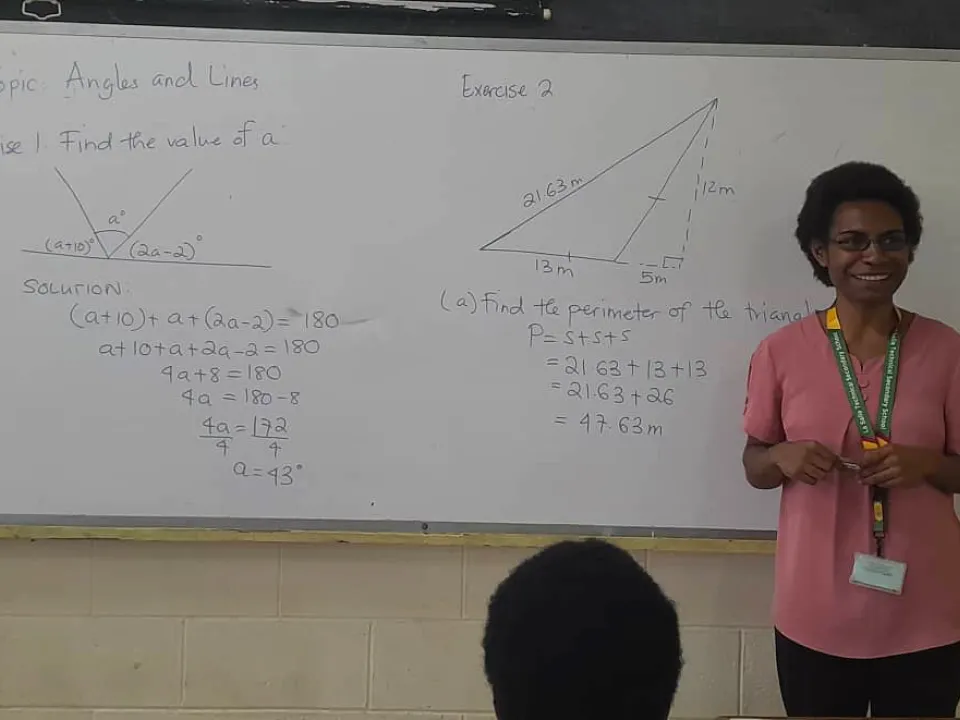 opic: Angles and Lines
ise 1. Find the value of a
a°
(a+10)° (2a-2)°
SOLUTION:
(a+10) + a + (2a-2) = 180
a+10+a+2a-2 = 180
4a+8 = 180
4a = 180-8
4a = 172
4 4
a = 43°
Exercise 2
21.63m
12m
13m
5m
(a) Find the perimeter of the triangl
P = s+s+s
= 21.63 + 13 + 13
= 21.63 + 26
= 47.63m
La Salle Technical Secondary School